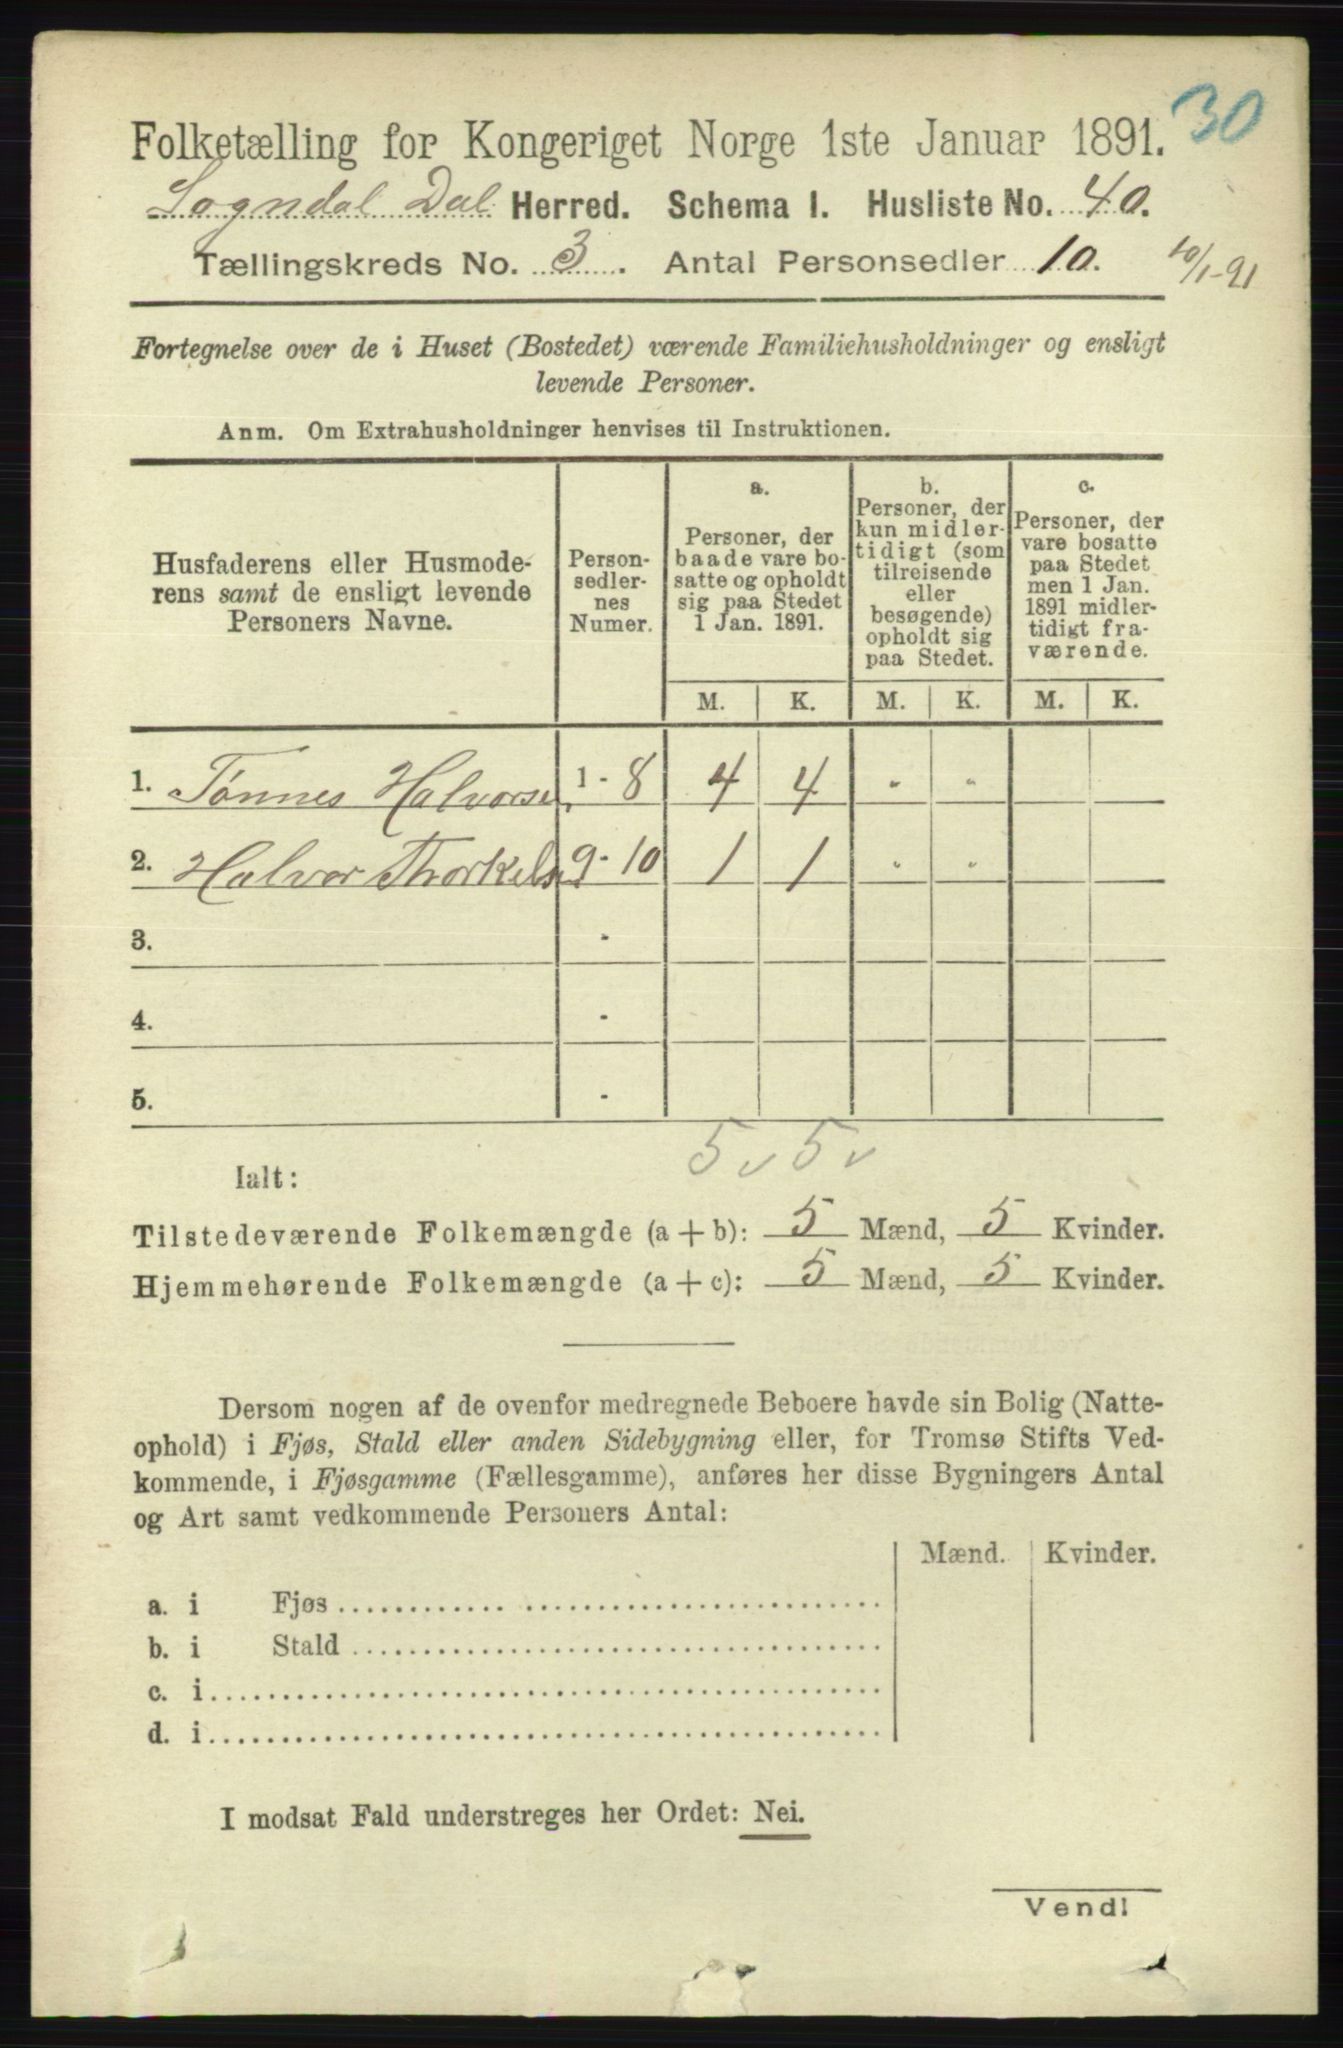 30
Folketælling for Kongeriget Norge 1ste Januar 1891.
Sogndal Dal Herred. Schema I. Husliste No. 40.
Tællingskreds No. 3. Antal Personsedler 10. 10/1-91
Fortegnelse over de i Huset (Bostedet) værende Familiehusholdninger og ensligt
levende Personer.
Anm. Om Extrahusholdninger henvises til Instruktionen.
Husfaderens eller Husmode-
rens samt de ensligt levende
Personers Navne.
Person-
sedler-
nes
Numer.
a.
Personer, der
baade vare bo-
satte og opholdt
sig paa Stedet
1 Jan. 1891.
b.
Personer, der
kun midler-
tidigt (som
tilreisende
eller
besøgende)
opholdt sig
paa Stedet.
c.
Personer, der
vare bosatte
paa Stedet
men 1 Jan.
1891 midler-
tidigt fra-
værende.
M. K. M. K. M. K.
1. Tønnes Halvorsen 1 - 8 4 4 " "
2. Halvor Thorkelsen 9 - 10 1 1 " "
3. -
4. -
5. -
5 v 5 v
Ialt:
Tilstedeværende Folkemængde (a + b): 5 Mænd, 5 Kvinder.
Hjemmehørende Folkemængde (a + c): 5 Mænd, 5 Kvinder.
Dersom nogen af de ovenfor medregnede Beboere havde sin Bolig (Natte-
ophold) i Fjøs, Stald eller anden Sidebygning eller, for Tromsø Stifts Ved-
kommende, i Fjøsgamme (Fællesgamme), anføres her disse Bygningers Antal
og Art samt vedkommende Personers Antal:
Mænd. Kvinder.
a. i Fjøs
b. i Stald
c. i
d. i
I modsat Fald understreges her Ordet: Nei.
Vend!